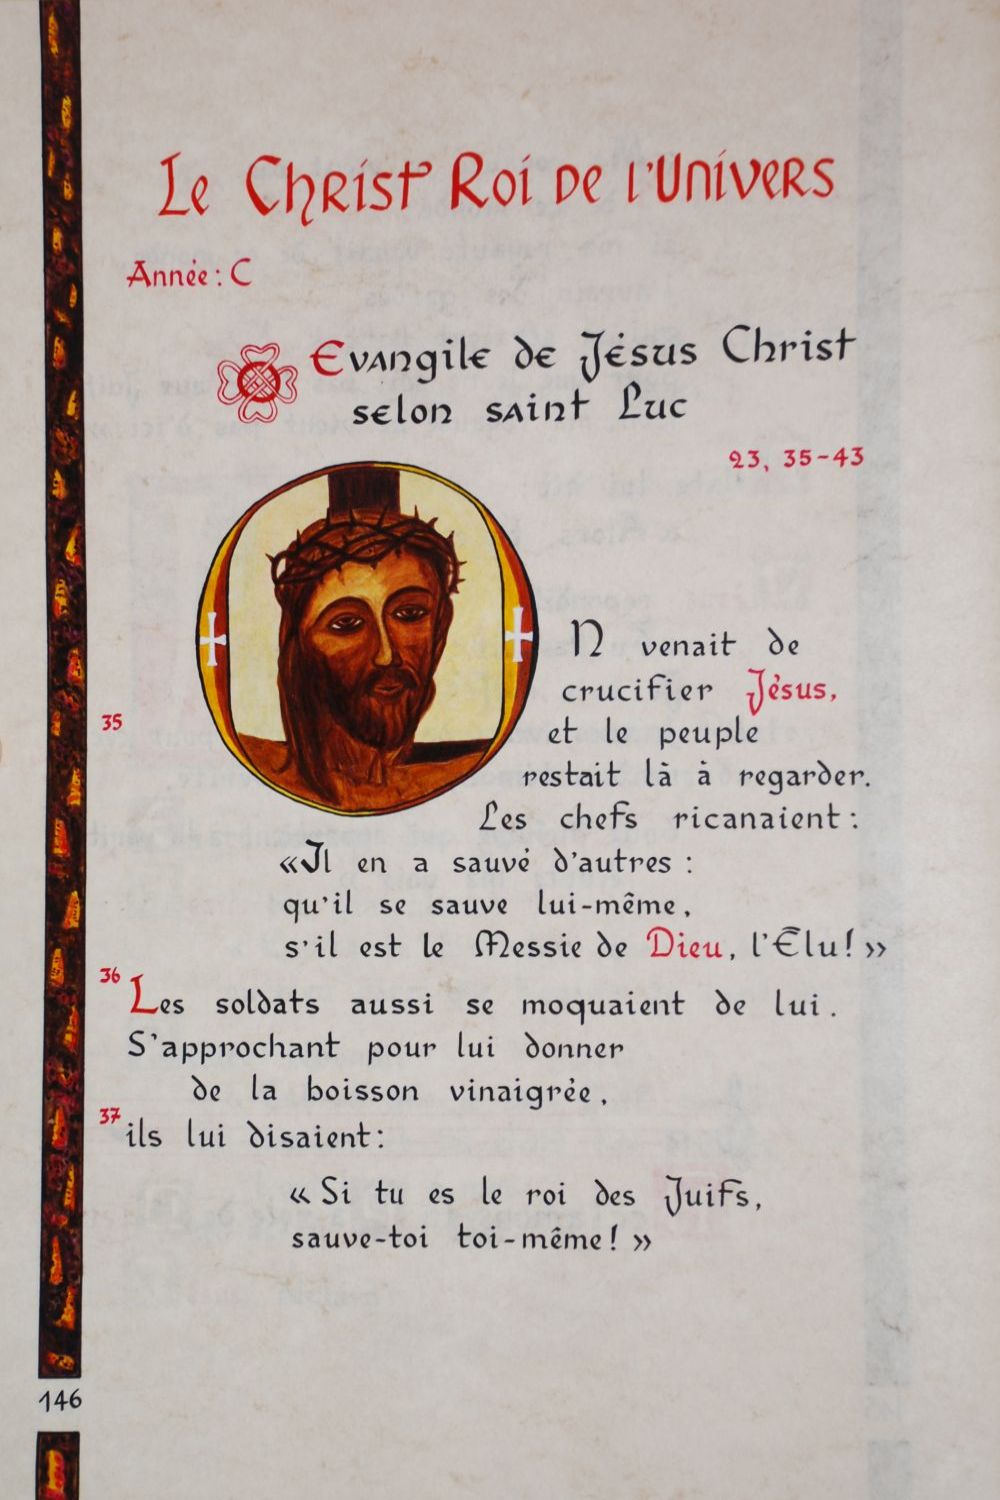 Le Christ Roi de l'Univers
Année: C
Evangile de Jésus Christ
selon saint Luc
23, 35-43
ON venait de
crucifier Jésus,
35
et le peuple
restait là à regarder.
Les chefs ricanaient :
«Il en a sauvé d'autres :
qu'il se sauve lui-même,
s'il est le Messie de Dieu, l'Élu! »
36
Les soldats aussi se moquaient de lui.
S'approchant pour lui donner
de la boisson vinaigrée,
37
ils lui disaient:
« Si tu es le roi des Juifs,
sauve-toi toi-même! »
146